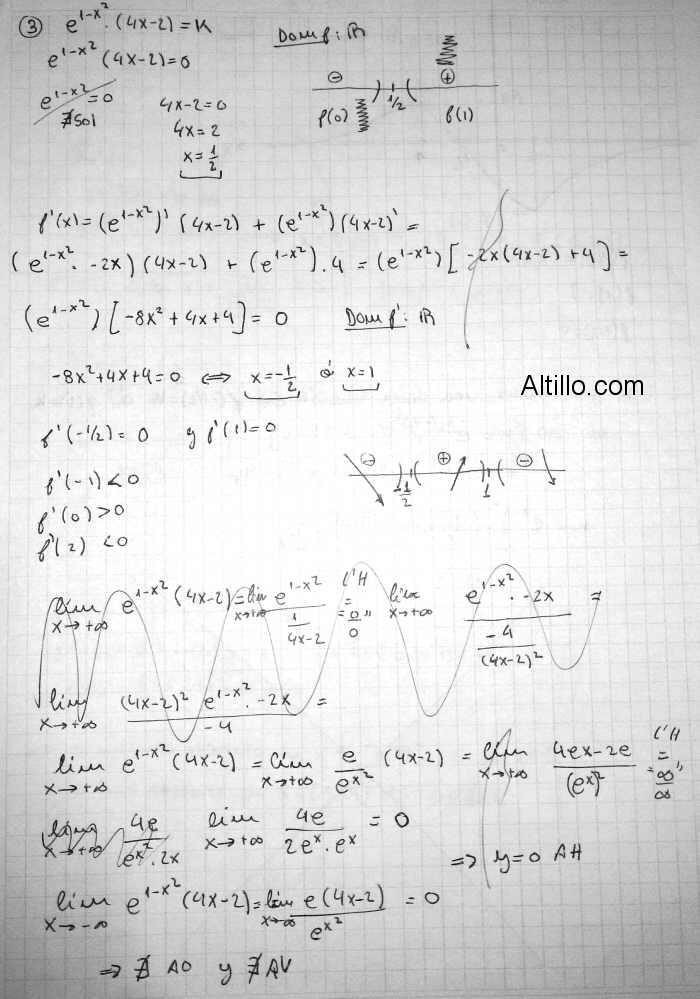 ③ e^{1-x²} · (4x-2) = K
e^{1-x²} (4x-2) = 0
Dom f: ℝ
e^{1-x²} = 0
∄ Sol
4x-2=0
4x=2
x=1/2
⊖ ⊕
1/2
f(0) f(1)
f'(x) = (e^{1-x²})' (4x-2) + (e^{1-x²}) (4x-2)' =
(e^{1-x²} · -2x) (4x-2) + (e^{1-x²}) · 4 = (e^{1-x²}) [-2x(4x-2) +4] =
(e^{1-x²}) [-8x² + 4x + 4] = 0 Dom f': ℝ
-8x²+4x+4=0 ⟺ x=-1/2 ó x=1
f'(-1/2) = 0 y f'(1)=0
f'(-1) < 0
f'(0) > 0
f'(2) < 0
⊖ ⊕ ⊖
-1/2 1
Altillo.com
lim x→+∞ e^{1-x²} (4x-2) = lim x→+∞ e^{1-x²} / (1/(4x-2)) L'H = "0/0" lim x→+∞ (e^{1-x²} · -2x) / (-4/(4x-2)²) =
lim x→+∞ ((4x-2)² e^{1-x²} · -2x) / -4 =
lim x→+∞ e^{1-x²} (4x-2) = lim x→+∞ e/e^{x²} (4x-2) = lim x→+∞ (4ex-2e)/(e^x)² L'H = "∞/∞"
lim x→+∞ 4e/(e^{x²} · 2x) lim x→+∞ 4e/(2e^x · e^x) = 0
⇒ y=0 AH
lim x→-∞ e^{1-x²} (4x-2) = lim x→∞ e(4x-2)/e^{x²} = 0
⇒ ∄ AO y ∄ AV